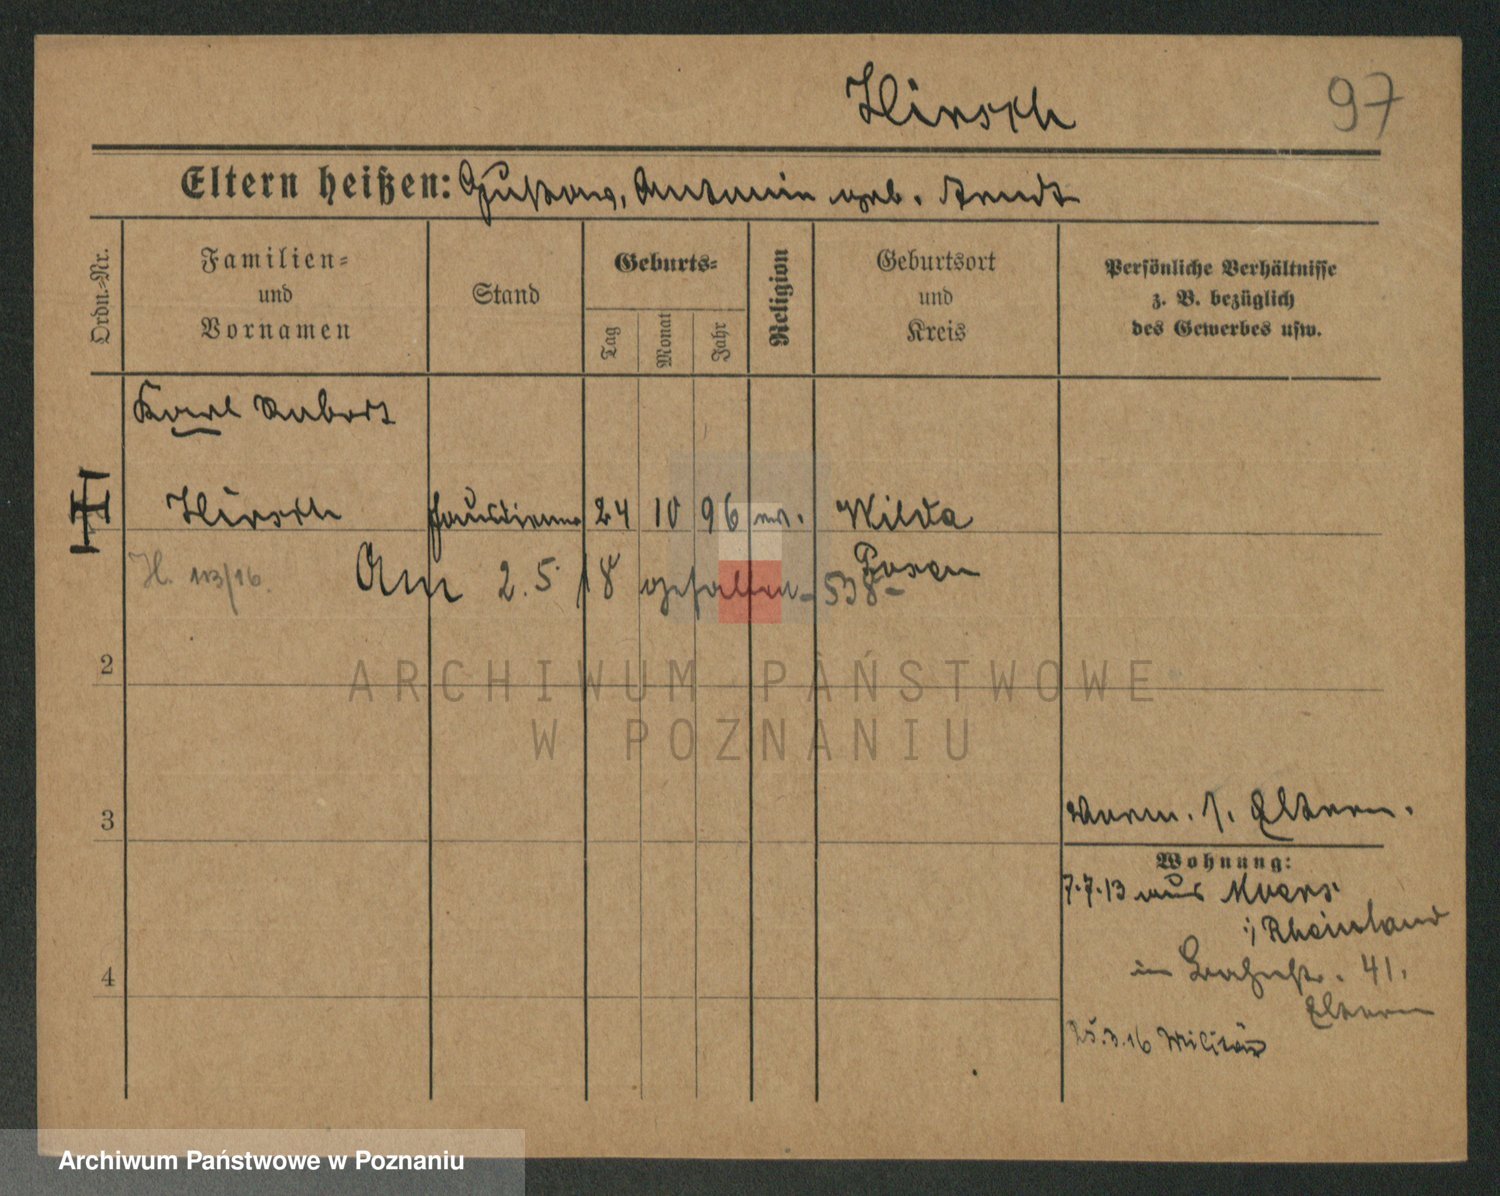 Hirsch 97
Eltern heißen: Gustav, Antonin geb. Arndt
Ordn.-Nr.
Familien-
und
Vornamen
Stand
Geburts-
Tag
Monat
Jahr
Religion
Geburtsort
und
Kreis
Persönliche Verhältnisse
z. B. bezüglich
des Gewerbes usw.
Karl Robert
Hirsch 24 10 96 ev. Wilda
Posen
H. 113/16. Am 2.5.18 gefallen - 538 -
2
3
4
Eltern.
Wohnung:
7.7.13 aus Moers
i/Rheinland
in 41.
Eltern
25.3.16 Militär
ARCHIWUM PAŃSTWOWE
W POZNANIU
Archiwum Państwowe w Poznaniu